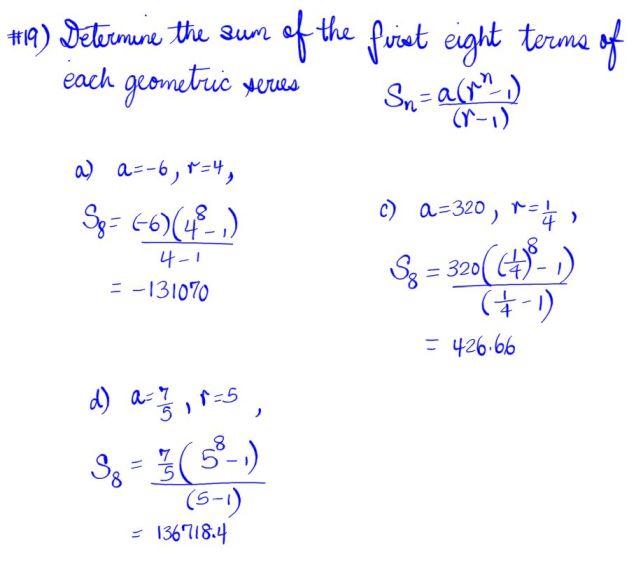 #19) Determine the sum of the first eight terms of
each geometric series Sn = a(r^n - 1) / (r - 1)
a) a = -6, r = 4,
S8 = (-6)(4^8 - 1) / 4 - 1
= -131070
c) a = 320, r = 1/4,
S8 = 320((1/4)^8 - 1) / (1/4 - 1)
= 426.66
d) a = 7/5, r = 5,
S8 = 7/5(5^8 - 1) / (5 - 1)
= 136718.4